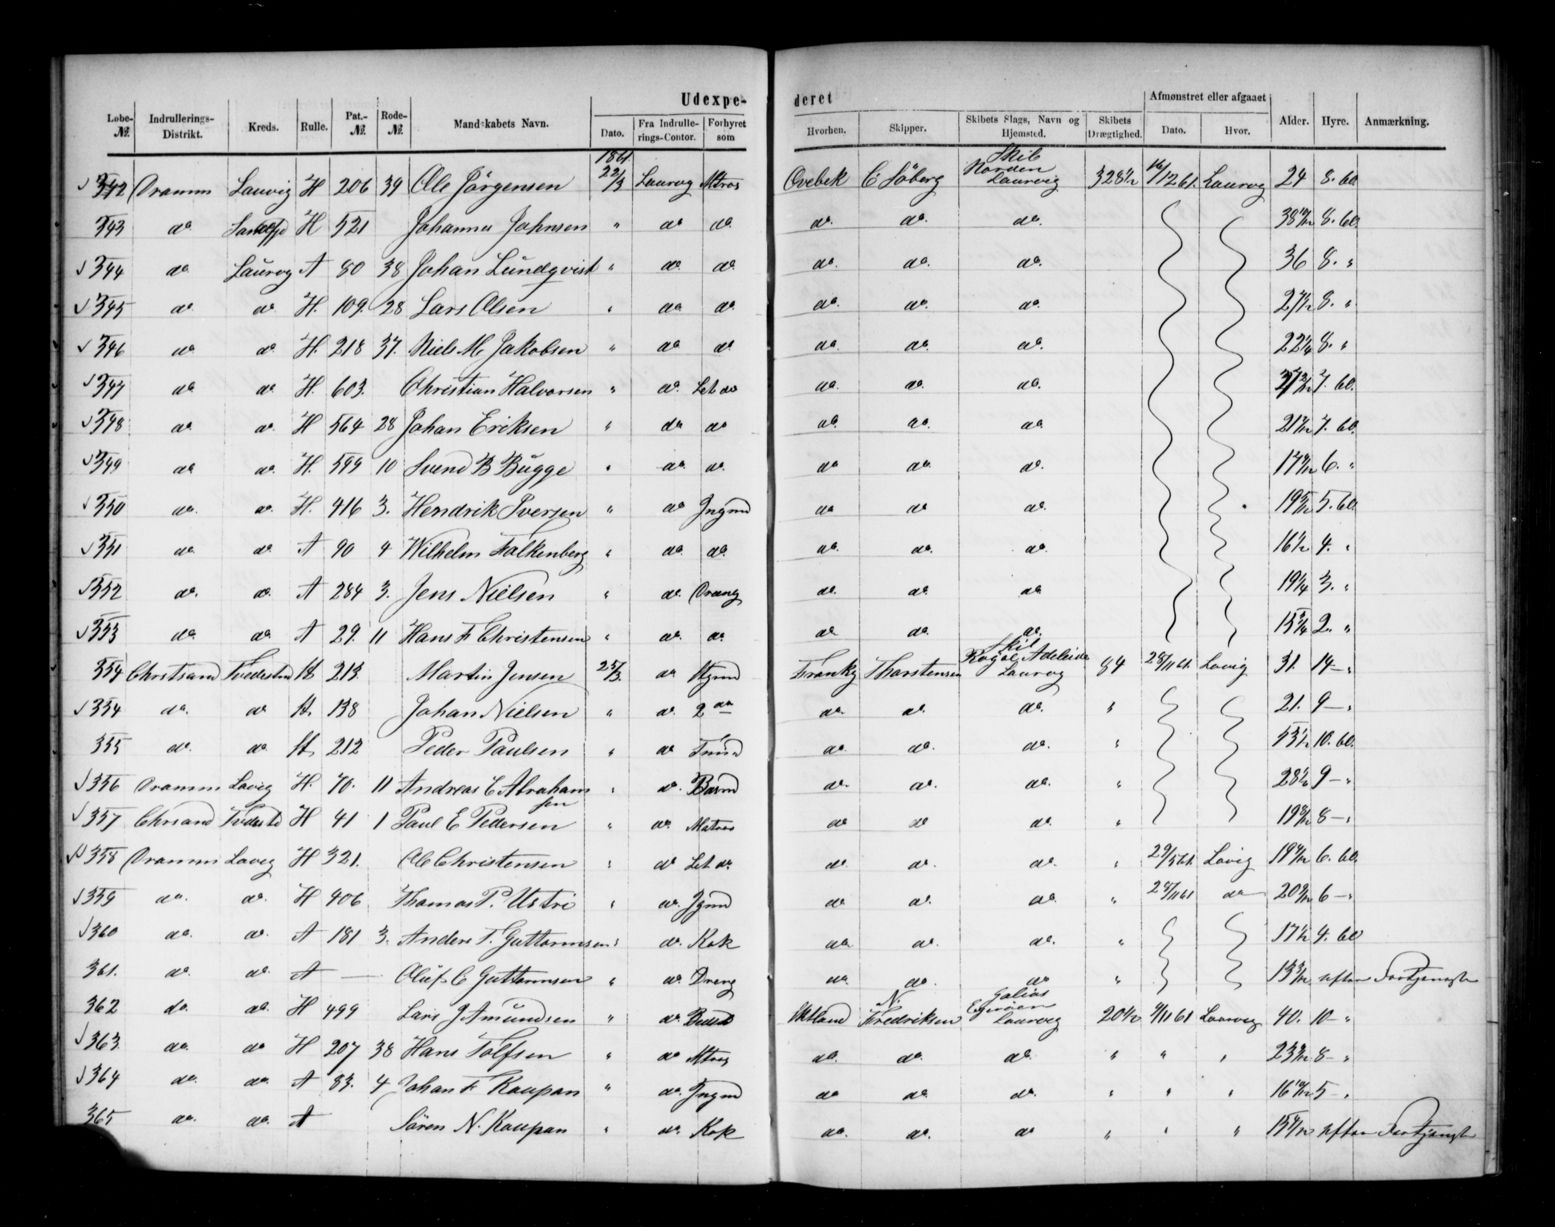 Udexpederet
Løbe-№. Indrullerings-Distrikt. Kreds. Rulle. Pat.-№. Rode-№. Mandskabets Navn. Dato. Fra Indrullerings-Contor. Forhyret som Hvorhen. Skipper. Skibets Slags, Navn og Hjemsted. Skibets Drægtighed. Afmønstret eller afgaaet Dato. Hvor. Alder. Hyre. Anmærkning.
1861
342 Dramm Laurvig H 206 39 Ole Jörgensen 22/3 Laurvg Mtros Ovebek C Söberg Skib Norden Laurvig 328½ 16/12 61 Laurvg 24 8. 60
343 do H 521 Johannes Johnsen " do do do do do 8. 60
344 do Laurvg A 80 38 Johan Lundqvist " do do do do do 36 8. "
345 do do H. 109. 28 Lars Olsen " do do do do do 8. "
346 do do H. 218 37. Niels M Jakobsen " do do do do do 8. "
347 do do H. 603. Christian Halvorsen " do Let do do do do 7. 60
348 do do H 564 28 Johan Eriksen " do do do do do 7. 60
349 do do H. 599 10 Svend B Bugge " do do do do do 6. "
350 do do H. 416 3. Hendrik Iversen " do Jngmd do do do 5. 60
351 do do A 90 4 Wilhelm Falkenberg " do do do do do 4. "
352 do do A 284 3. Jens Nielsen " do Dreng do do do 3. "
353 do do A 29 11 Hans F Christensen " do do do do do 2. "
354 Christsand Tvedestrd H 213. Martin Jensen 25/3 do Stymd Franky Thorstensen Skib Royal Adelaide Laurvg 84 28/11 61 Lavig 31. 14 - "
354 do. do H. 138 Johan Nielsen " do 2 do do do do " 21. 9 - "
355 do. do H 212 Peder Paulsen " do Tmmd do do do " 10. 60
356 Dramm Lavig H. 70. 11 Andreas C Abrahamsen " do do do do " 9 - "
357 Chrsand Tvedestd H 41 1 Paul E Pedersen " do Matros do do do " 8 - "
358 Dramm Lavig H 321. Ol Christensen " do Let do do do do " 29/5 61 Lavig 6. 60
359 do. do. H 406 Thomas P. Ustvi " do Jgmd do do do " 28/11 61 do 6 - "
360 do. do. A 181 3. Anders F. Guttormsen " do Kok do do do " 4. 60
361. do do A — Oluf C Guttormsen " do Dreng do do do " efter Fortjeneste
362 do do H 499 Lars J Amundsen " do Hetland N. Fredriksen Galias Egerøen Laurvig 20½ 9/11 61 Laurvg 40. 10 - "
363 do. do. H 207 38 Hans Tolfsen " do Mtros do do do " " " 8 - "
364 do. do A 83. 4 Johan F. Kaupan " do Jngmd do do do " " " 5 - "
365 do. do. A Sören N. Kaupan " do Kok do do do " " " efter Fortjenest